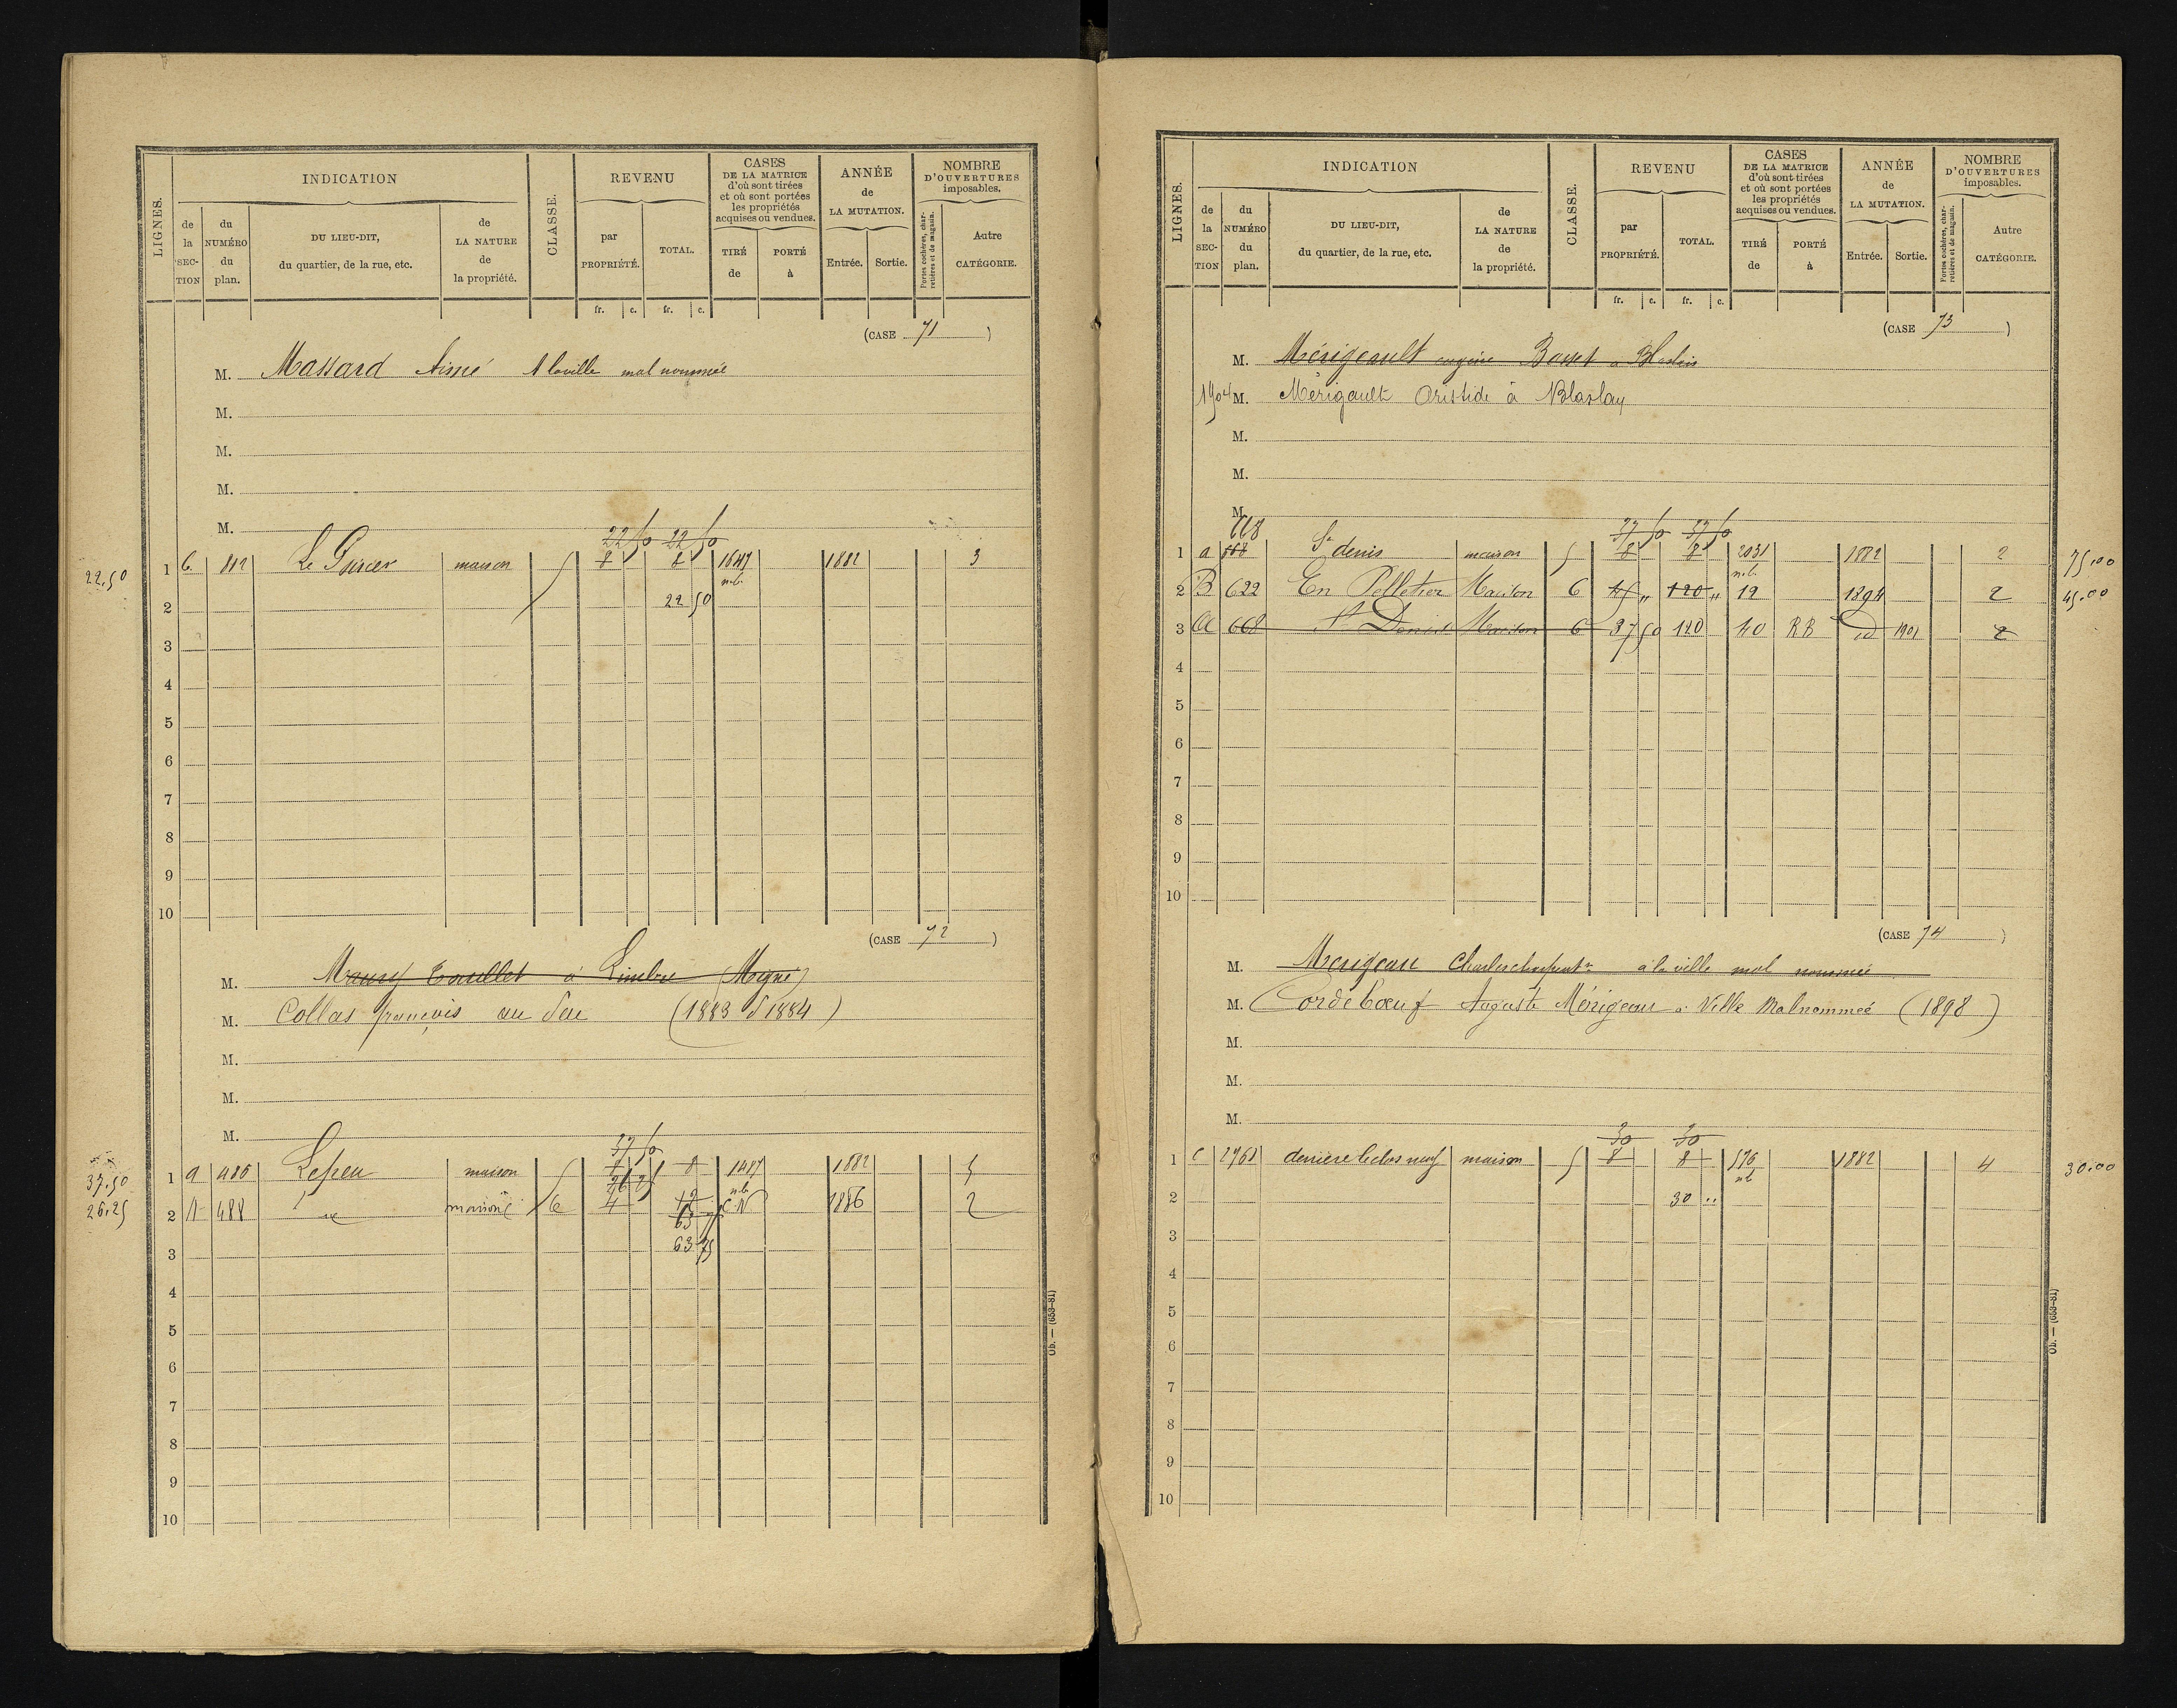 LIGNES.
INDICATION
de la SECTION
du NUMÉRO du plan.
DU LIEU-DIT, du quartier, de la rue, etc.
de LA NATURE de la propriété.
CLASSE.
REVENU
par PROPRIÉTÉ.
TOTAL.
CASES DE LA MATRICE d'où sont tirées et où sont portées les propriétés acquises ou vendues.
TIRÉ de
PORTÉ à
ANNÉE de LA MUTATION.
Entrée.
Sortie.
NOMBRE D'OUVERTURES imposables.
Portes cochères, charretières et de magasin.
Autre CATÉGORIE.
fr. c. fr. c.
(CASE 71)
M. Massard Aimé A laville mal nommée
M.
M.
M.
M.
22 50 22 50
22.50 1 C 812 maison 5 8 8 1647 1882 3
n.b.
2 22 50
3
4
5
6
7
8
9
10
(CASE 72)
M. à (Mogné)
M. Collas françois au feu (1883 d 1884)
M.
M.
M.
37 50
37.50 1 a 486 Lefeu maison 5 8 8 1487 1882 5
26 25 n.b.
26.25 2 A 488 maison 6 4 12 C.N 1886 2
63 75
3 63 75
4
5
6
7
8
9
10
Ob. — (653-81)
LIGNES.
INDICATION
de la SECTION
du NUMÉRO du plan.
DU LIEU-DIT, du quartier, de la rue, etc.
de LA NATURE de la propriété.
CLASSE.
REVENU
par PROPRIÉTÉ.
TOTAL.
CASES DE LA MATRICE d'où sont tirées et où sont portées les propriétés acquises ou vendues.
TIRÉ de
PORTÉ à
ANNÉE de LA MUTATION.
Entrée.
Sortie.
NOMBRE D'OUVERTURES imposables.
Portes cochères, charretières et de magasin.
Autre CATÉGORIE.
fr. c. fr. c.
(CASE 73)
M. Mérigeault eugène
1904 M. Mérigault Aristide à Blaslay
M.
M.
M.
668 37 50 37 50
1 a St denis maison 5 8 8 2031 1882 2 75.00
n.b.
2 B 622 En Pelletier Maison 6 45 " 120 " 12 1894 2 45.00
3 a 668 St Denis Maison 6 37 50 120 40 RB id 1901 2
4
5
6
7
8
9
10
(CASE 74)
M. Merigeau Charles charpentr à la ville mal nommée
M. Cordebœuf Auguste Mérigeau à Ville Malnommée (1898)
M.
M.
M.
30 30
1 C 2761 derriere leclos neuf maison 5 8 8 176 1882 4 30.00
2 30 ..
3
4
5
6
7
8
9
10
Ob. — (653-81)